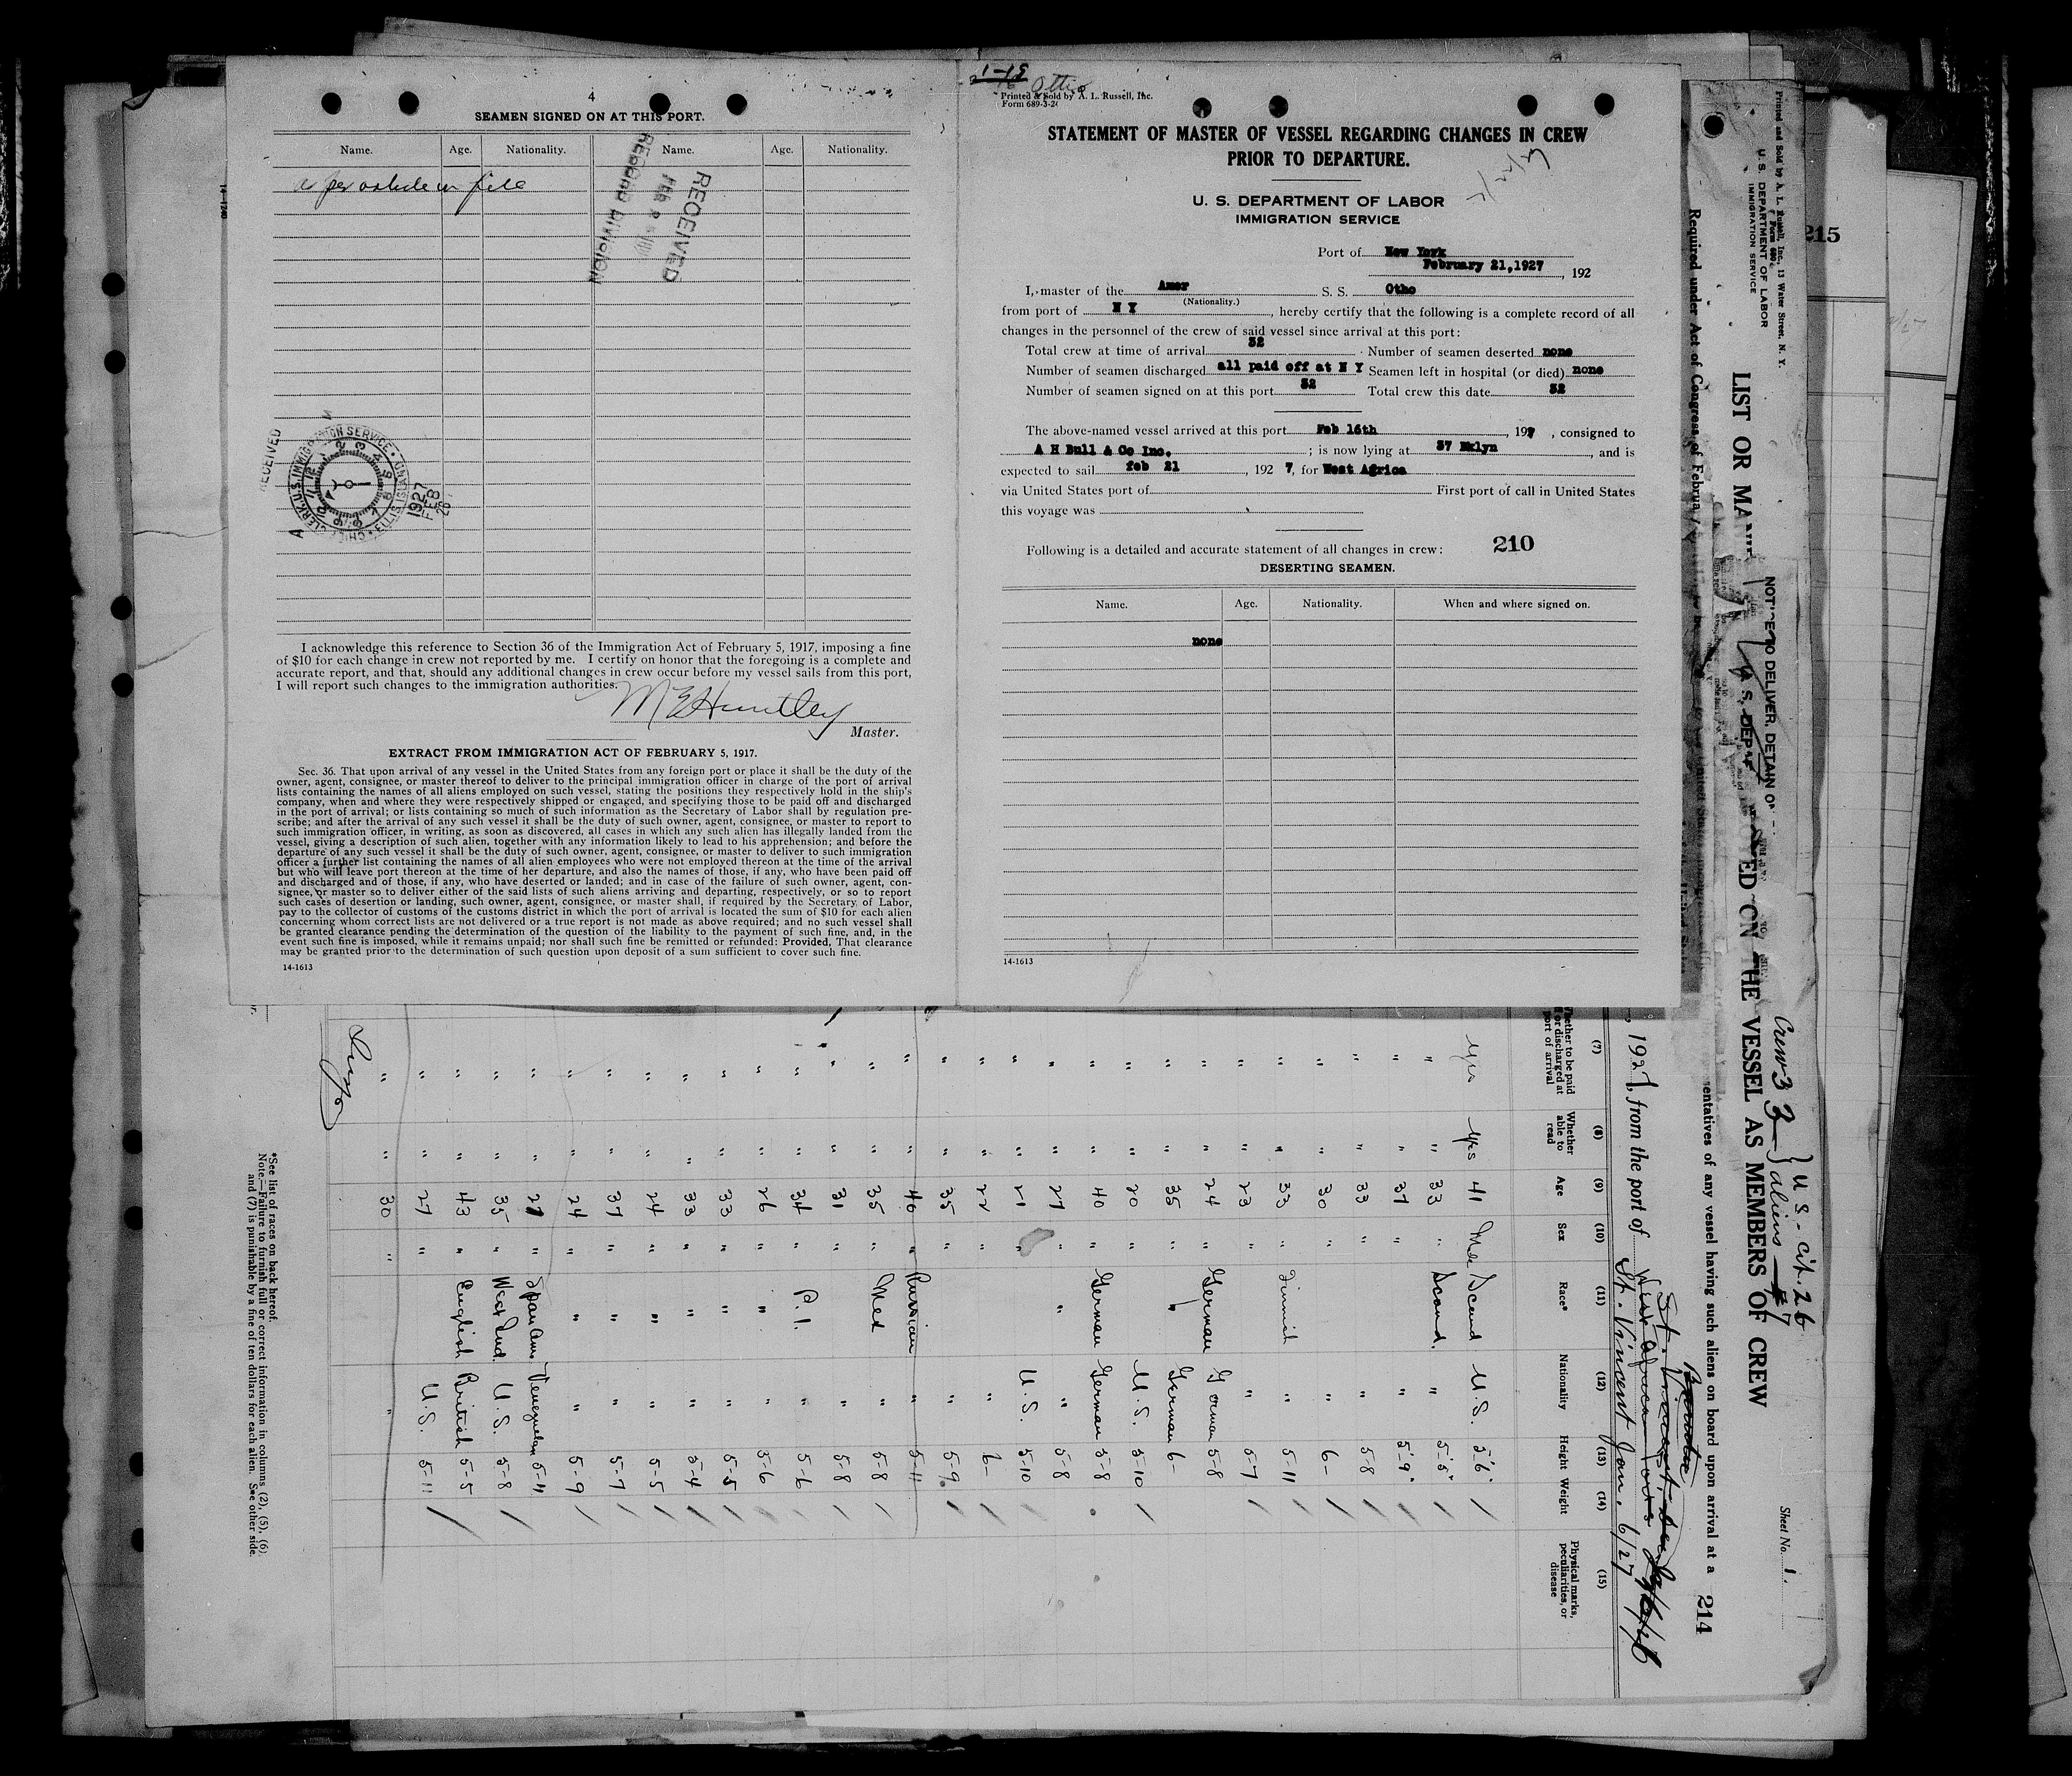 4
SEAMEN SIGNED ON AT THIS PORT.
Name. Age. Nationality. Name. Age. Nationality.
file
RECEIVED
FEB
RECORD DIVISION
RECEIVED
CHIEF CLERK, U.S. IMMIGRATION SERVICE • ELLIS ISLAND
1927
FEB
I acknowledge this reference to Section 36 of the Immigration Act of February 5, 1917, imposing a fine
of $10 for each change in crew not reported by me. I certify on honor that the foregoing is a complete and
accurate report, and that, should any additional changes in crew occur before my vessel sails from this port,
I will report such changes to the immigration authorities.
M E Huntley
Master.
EXTRACT FROM IMMIGRATION ACT OF FEBRUARY 5, 1917.
Sec. 36. That upon arrival of any vessel in the United States from any foreign port or place it shall be the duty of the
owner, agent, consignee, or master thereof to deliver to the principal immigration officer in charge of the port of arrival
lists containing the names of all aliens employed on such vessel, stating the positions they respectively hold in the ship's
company, when and where they were respectively shipped or engaged, and specifying those to be paid off and discharged
in the port of arrival; or lists containing so much of such information as the Secretary of Labor shall by regulation pre-
scribe; and after the arrival of any such vessel it shall be the duty of such owner, agent, consignee, or master to report to
such immigration officer, in writing, as soon as discovered, all cases in which any such alien has illegally landed from the
vessel, giving a description of such alien, together with any information likely to lead to his apprehension; and before the
departure of any such vessel it shall be the duty of such owner, agent, consignee, or master to deliver to such immigration
officer a further list containing the names of all alien employees who were not employed thereon at the time of the arrival
but who will leave port thereon at the time of her departure, and also the names of those, if any, who have been paid off
and discharged and of those, if any, who have deserted or landed; and in case of the failure of such owner, agent, con-
signee, or master so to deliver either of the said lists of such aliens arriving and departing, respectively, or so to report
such cases of desertion or landing, such owner, agent, consignee, or master shall, if required by the Secretary of Labor,
pay to the collector of customs of the customs district in which the port of arrival is located the sum of $10 for each alien
concerning whom correct lists are not delivered or a true report is not made as above required; and no such vessel shall
be granted clearance pending the determination of the question of the liability to the payment of such fine, and, in the
event such fine is imposed, while it remains unpaid; nor shall such fine be remitted or refunded: Provided, That clearance
may be granted prior to the determination of such question upon deposit of a sum sufficient to cover such fine.
14-1613
1-15
Otho
Printed & Sold by A. L. Russell, Inc.
Form 689-3-26
STATEMENT OF MASTER OF VESSEL REGARDING CHANGES IN CREW
PRIOR TO DEPARTURE.
U. S. DEPARTMENT OF LABOR
IMMIGRATION SERVICE
Port of New York
February 21,1927, 192
I, master of the Amer S. S. Otho
(Nationality.)
from port of N Y, hereby certify that the following is a complete record of all
changes in the personnel of the crew of said vessel since arrival at this port:
Total crew at time of arrival 32 Number of seamen deserted none
Number of seamen discharged all paid off at N Y Seamen left in hospital (or died) none
Number of seamen signed on at this port 32 Total crew this date 32
The above-named vessel arrived at this port Feb 16th, 1927, consigned to
A H Bull & Co Inc. ; is now lying at 37 Bklyn, and is
expected to sail feb 21, 1927, for West Africa
via United States port of First port of call in United States
this voyage was
Following is a detailed and accurate statement of all changes in crew: 210
DESERTING SEAMEN.
Name. Age. Nationality. When and where signed on.
none
14-1613
215
Printed and Sold by A. L. Russell, Inc., 13 Water Street, N. Y.
U. S. DEPARTMENT OF LABOR
IMMIGRATION SERVICE
Crew 33 } U S - cit. 26
aliens 7
Sheet No. 1.
LIST OR
ED ON THE VESSEL AS MEMBERS OF CREW
Required under Act of Congress of
entatives of any vessel having such aliens on board upon arrival at a
214
, 1927, from the port of St. Vincent Jan. 6/27
(7) (8) (9) (10) (11) (12) (13) (14) (15)
Whether able to read
Age
Sex
Race*
Nationality
Height
Weight
Physical marks, peculiarities, or disease
yes yes 41 Male Scand U.S. 5'6"
" " 33 " Scand. " 5'5"
" " 37 " " 5'9"
" " 33 " " 5-8
" " 30 " " 6-
" " 33 " Finnish " 5-11
" " 23 " " 5-7
" " 24 " German German 5-8
" " 35 " " German 6-
" " 20 " U.S. 5-10
" " 40 " German German 5-8
" " 27 " " " 5-8
" " 21 U.S. 5-10
" " 22 " " 6-
" " 35 " " 5-9
" " 40 " Russian " 5-11
" " 35 " " 5-8
" " 31 " " 5-8
" " 34 " P.I. " 5-6
" " 26 " " " 5-6
" " 33 " " " 5-5
" " 33 " " " 5-4
" " 24 " " " 5-5
" " 37 " " " 5-7
" " 24 " " " 5-9
" " 27 " Span Am. Venezuelan 5-11
" " 35 " West Ind. U.S. 5-8
" " 43 " English British 5-5
" " 27 " U.S. 5-11
" " 30 " "
*See list of races on back hereof.
Note.—Failure to furnish full or correct information in columns (2), (5), (6)
and (7) is punishable by a fine of ten dollars for each alien. See other side.